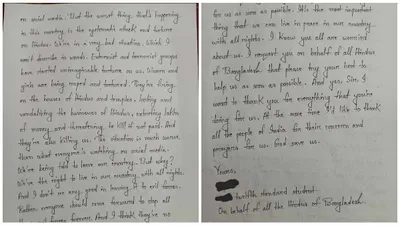 on social media. But the worst thing that's happening
in this country is the systematic attack and torture
on Hindus. We're in a very bad situation, which I
can't describe in words. Extremist and terrorist groups
have started unimaginable torture on us. Women and
girls are being raped and tortured. They're firing
on the houses of Hindus and temples, looting and
vandalizing the businesses of Hindus, extorting lakhs
of money, and threatening to kill if not paid. And
they're also killing us. The situation is much worse,
than what everyone's watching on social media.
We're being told to leave our country. But why?
We've the right to live in our country, with all rights.
And I don't see any good in leaving it to evil forces.
Rather everyone should come forward to stop all
forever. And I think they're no
for us as soon as possible. It's the most important
thing that we can live in peace in our country
with all rights. I know you all are worried
about us. I request you on behalf of all Hindus
of Bangladesh that please try your best to
help us as soon as possible. And yes, Sir. I
want to thank you for everything that you're
doing for us. At the same time I'd like to thank
all the people of India for their concern and
prayers for us. God save us.
Yours,
twelfth standard student.
On behalf of all the Hindus of Bangladesh.